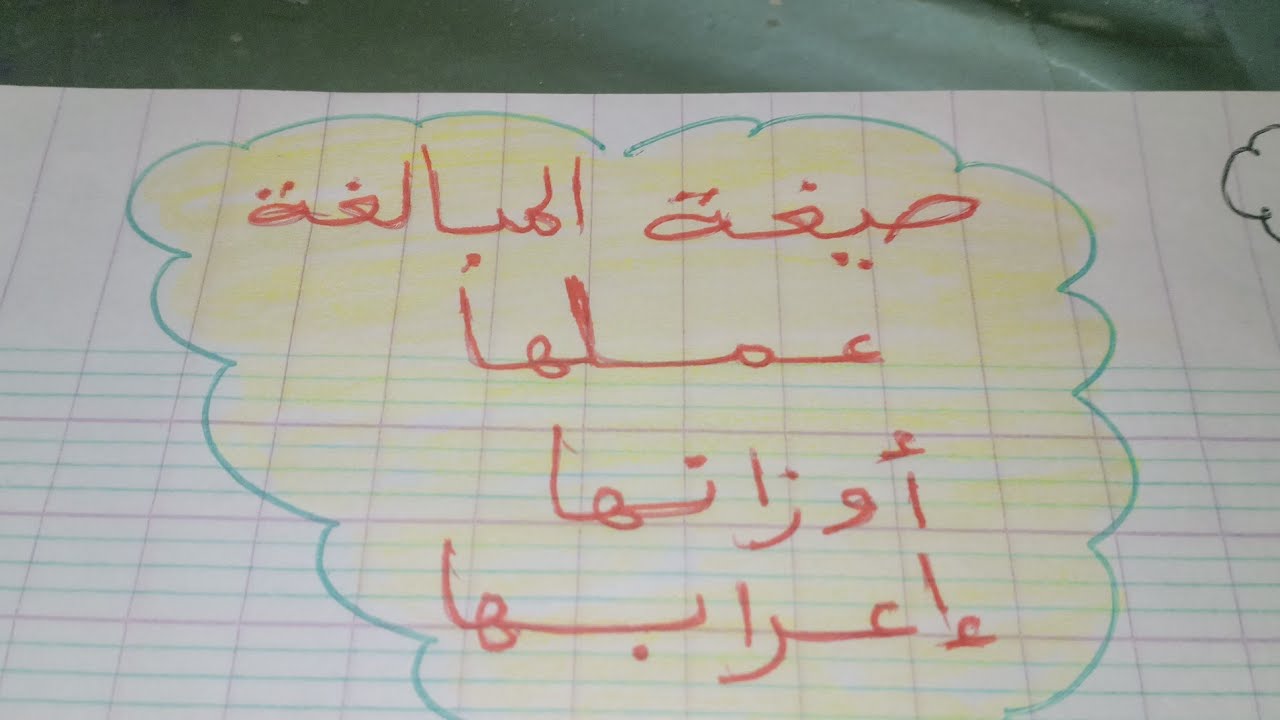 صيغة المبالغة
عملها
أوزانها
إعرابها